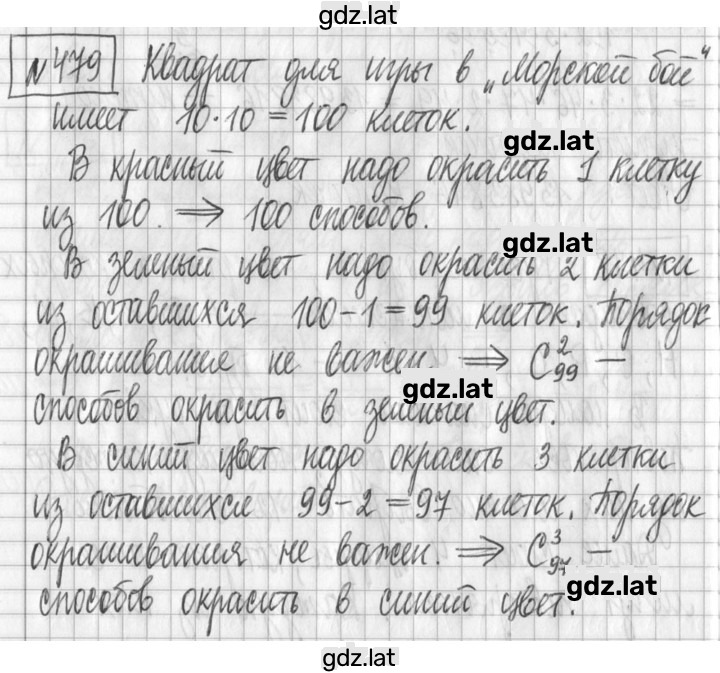 gdz.lat
№479 Квадрат для игры в „Морской бой“
имеет 10·10=100 клеток.
gdz.lat
В красный цвет надо окрасить 1 клетку
из 100. ⟹ 100 способов.
gdz.lat
В зеленый цвет надо окрасить 2 клетки
из оставшихся 100-1=99 клеток. Порядок
окрашивания не важен. ⟹ C₉₉² —
gdz.lat
способов окрасить в зеленый цвет.
В синий цвет надо окрасить 3 клетки
из оставшихся 99-2=97 клеток. Порядок
окрашивания не важен. ⟹ C₉₇³ —
gdz.lat
способов окрасить в синий цвет.
gdz.lat